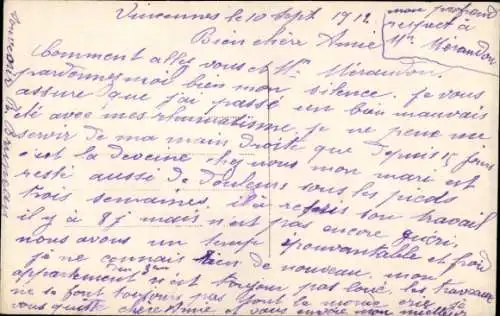 Vincennes le 10 Sept 1912
mon profond
respect à
Mr Méraudon
Bien chère Amie
Comment allez vous et Mr Méraudon.
pardonnez moi bien mon silence. je vous
assure que j'ai passé un bien mauvais
été avec mes rhumatisme. je ne peux me
servir de ma main droite que depuis 15 jours
c'est la deveine chez nous mon mari est
resté aussi de douleurs sous les pieds
trois semaines. il a repris son travail
il y a 8 j mais n'est pas encore guéri.
nous avons un temp épouvantable et froid
je ne connais rien de nouveau. mon
appartement n'est toujour pas loué. les travaux
ne se font toujours pas
vous quitte chère Amie et vous envoie mon meilleur